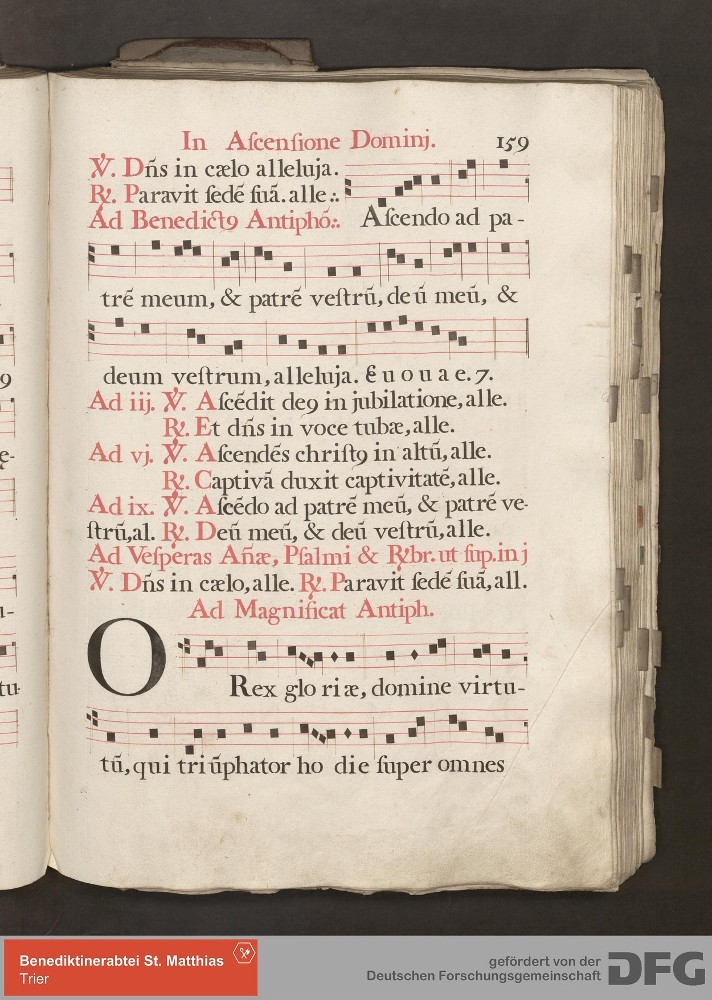 In Aſcenſione Dominj. 159
℣. Dn̄s in cælo alleluja.
℟. Paravit ſedē ſuā. alle∴
Ad Benedictꝯ Antiphō∴ Aſcendo ad pa-
trē meum, & patrē veſtrū, deū meū, &
deum veſtrum, alleluja. Euouae. 7.
Ad iij. ℣. Aſcēdit deꝯ in jubilatione, alle.
℟. Et dn̄s in voce tubæ, alle.
Ad vj. ℣. Aſcendēs chriſtꝯ in altū, alle.
℟. Captivā duxit captivitatē, alle.
Ad ix. ℣. Aſcēdo ad patrē meū, & patrē ve-
ſtrū, al. ℟. Deū meū, & deū veſtrū, alle.
Ad Veſperas An̄æ, Pſalmi & ℟br. ut ſup. in j
℣. Dn̄s in cælo, alle. ℟. Paravit ſedē ſuā, all.
Ad Magnificat Antiph.
O Rex gloriæ, domine virtu-
tū, qui triūphator hodie ſuper omnes
9
e-
u-
tu-
Benediktinerabtei St. Matthias
Trier
gefördert von der
Deutschen Forschungsgemeinschaft
DFG